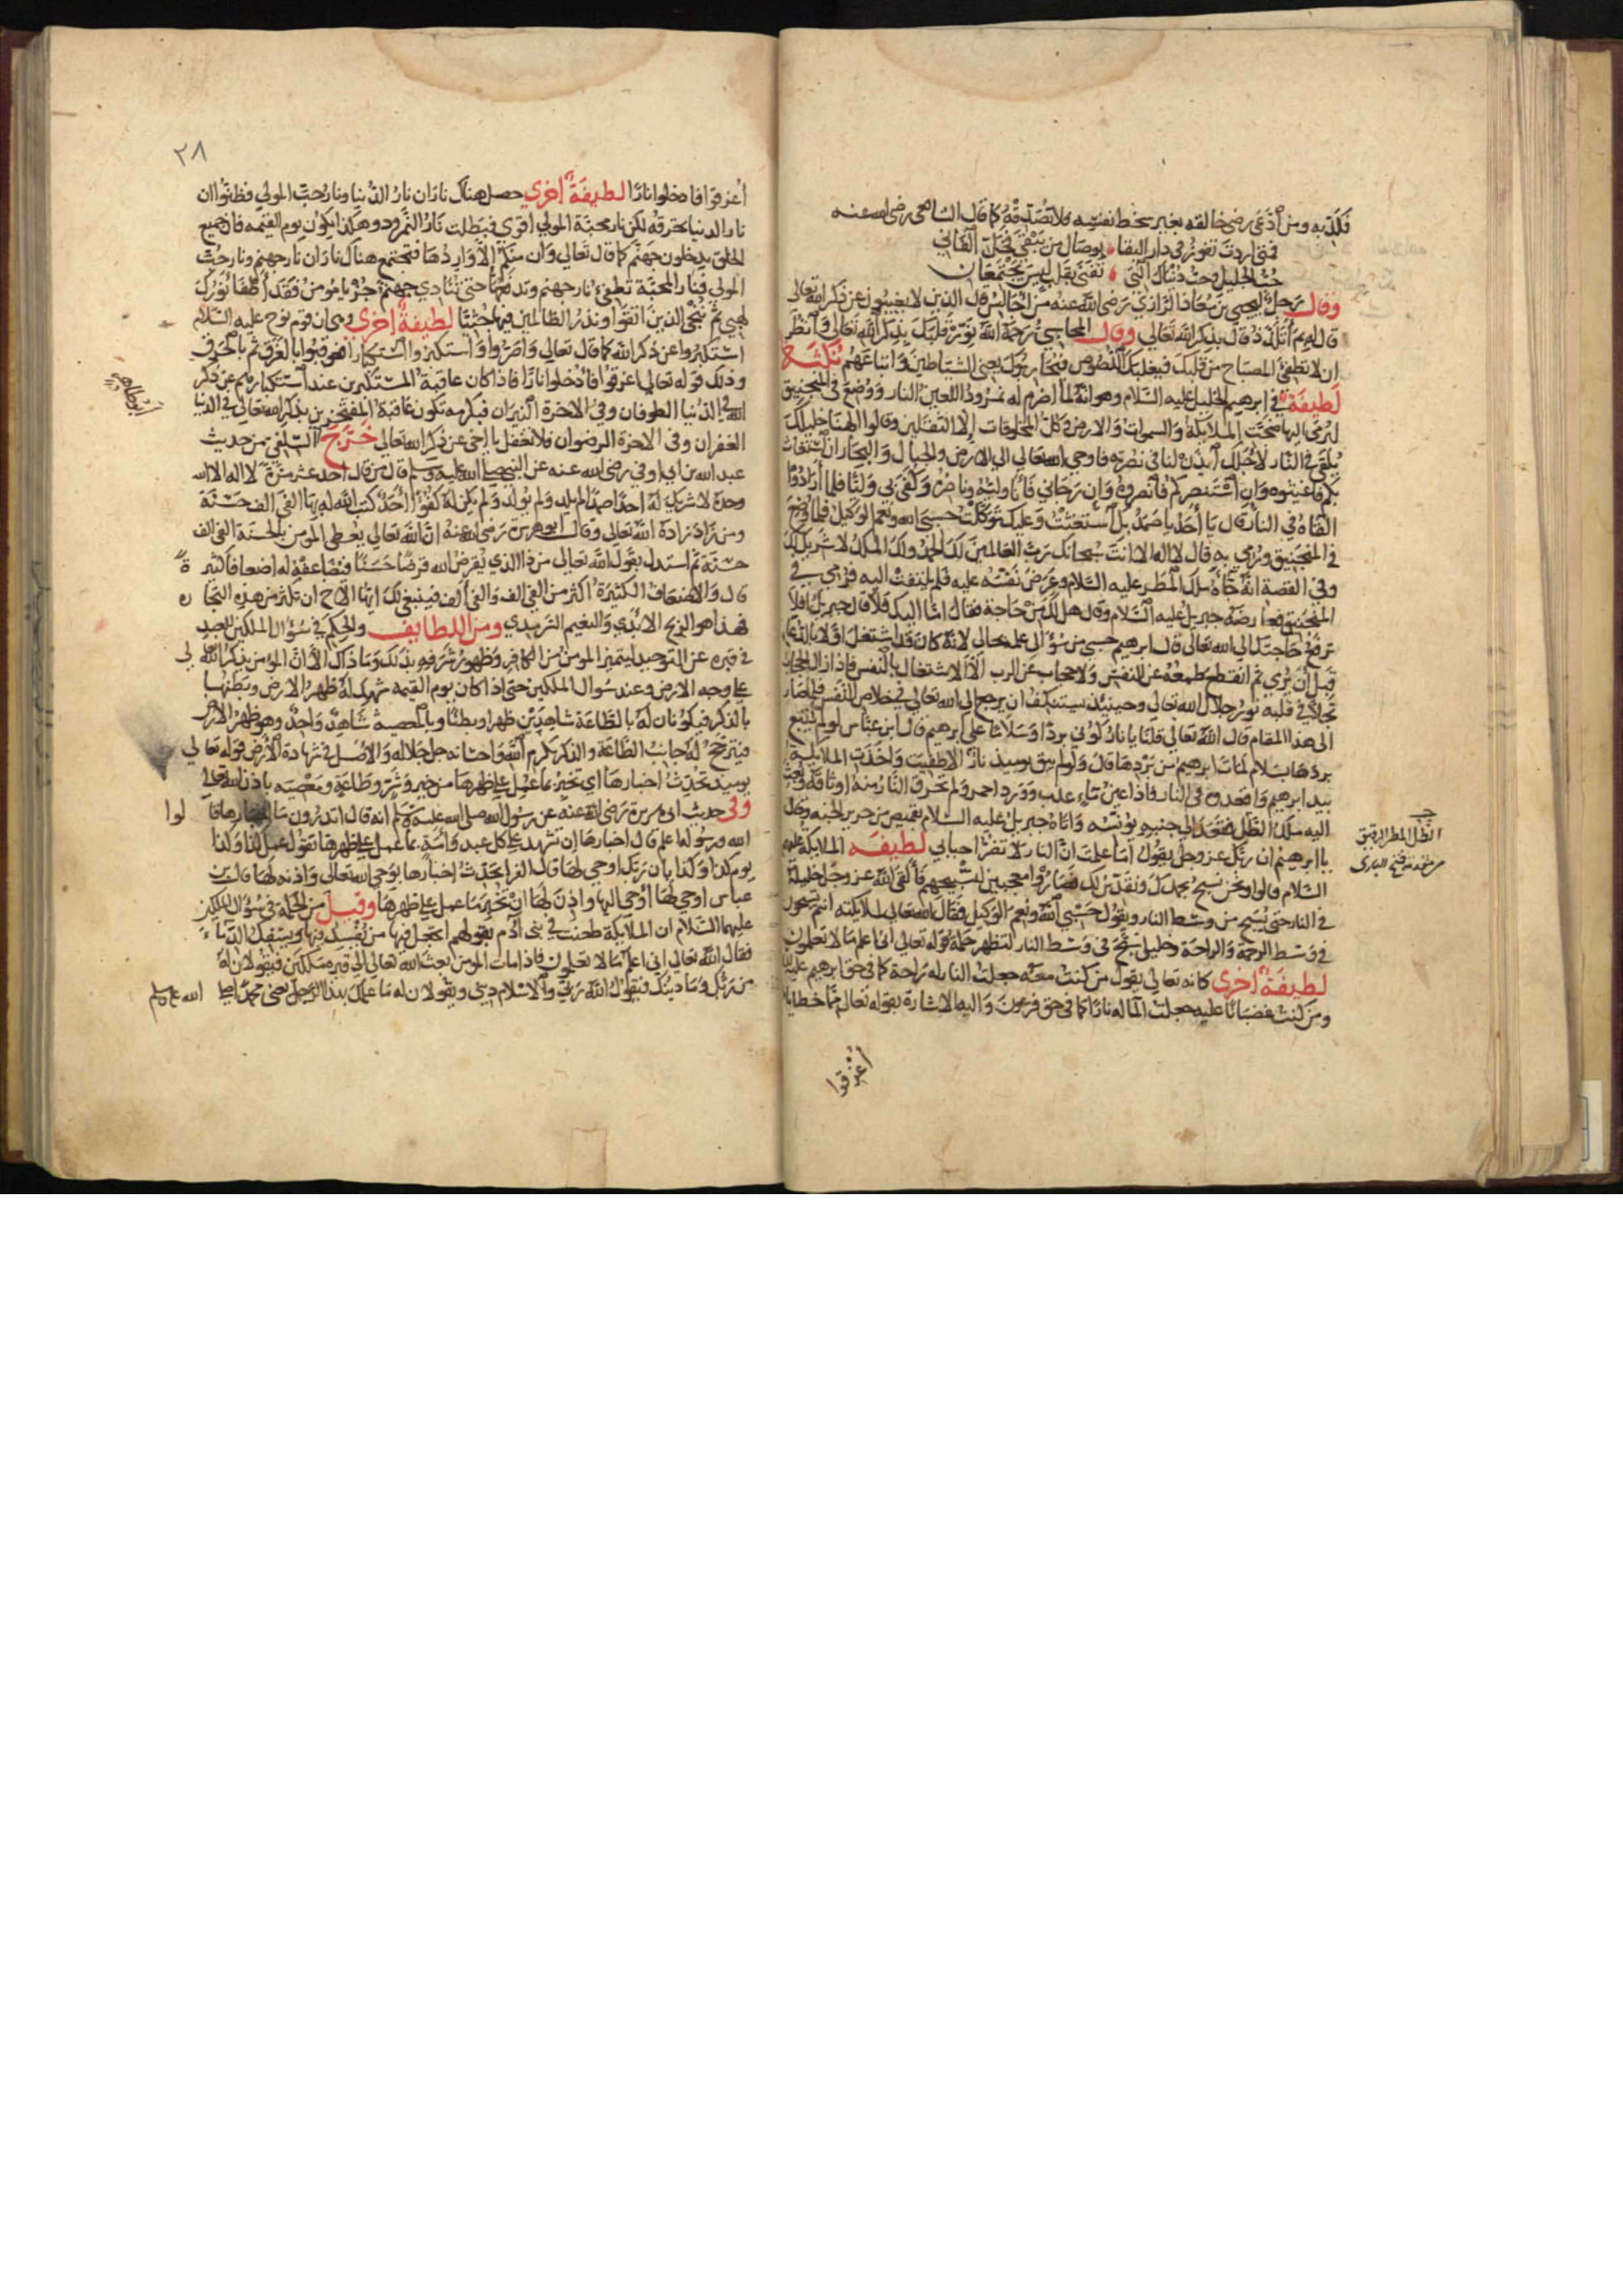 فكذبه ومن ادعى رضى خالقه بغير سخط نفسه فلا تصدقه كما قال الشافعي رضي الله عنه
فمتى اردت تفوز في دار البقا بوصال من يبقى فخل الفاني
حب الجليل وحب دنياك التي تفنى بقلب ليس يجتمعان
وقال رجل ليحيى بن معاذ الرازي رضي الله عنه من اجالس قال الذين لا يغيبون عن ذكر الله تعالى
قال بم اتلذذ قال بذكر الله تعالى وقال المحاسبي رحمة الله نور قلبك بذكر الله تعالى وانظر
ان لا تطفئ المصباح من قلبك فيغلبك اللصوص يعني الشياطين واتباعهم
لطيفة في ابرهيم الخليل عليه السلام وهو انه لما اضرم له نمروذ اللعين النار ووضع في المنجنيق
ليرمى اليها ضجت الملايكة والسموات والارض وكل المخلوقات الا الثقلين وقالوا الهنا خليلك
يلقى في النار لاجلك ايذن لنا في نصرته فاوحى الله تعالى الى الارض والجبال والبحار ان استغاث
بكم فاغيثوه وان استنصركم فانصروه وان رجاني فانا وليه وناصره وكفى بي وليا فلما ارادوا
القاه في النار قال يا احد يا صمد بك استغثت وعليك توكلت حسبي الله ونعم الوكيل فلما وضع
في المنجنيق ورمي به قال لا اله الا انت سبحانك رب العالمين لك الحمد ولك الملك لا شريك لك
وفي القصة انه جاه ملك المطر عليه السلام وعرض نفسه عليه فلم يلتفت اليه فرمي في
المنجنيق فعارضه جبريل عليه السلام وقال هل لك من حاجة فقال اما اليك فلا قال جبريل افلا
ترفع حاجتك الى الله تعالى قال ابرهيم حسبي من سؤالي علمه بحالي لانه كان قد اشتغل اولا
قبل ان يرمي ثم انقطع طمعه عن النفس ولا حجاب عن الرب الا الاشتغال بالنفس فاذا زال الحجاب
تجلى في قلبه نور جلال الله تعالى وحينيذ يستنكف ان يرجع الى الله تعالى في خلاص النفس فلما صار
الى هذا المقام قال الله تعالى قلنا يا نار كوني بردا وسلاما على ابرهيم قال ابن عباس لو لم يتبع
بردها بسلام لمات ابرهيم من بردها قال ولم يبق يوميذ نار الا طفيت واخذت الملايكة
بيد ابرهيم واقعدوه في النار فاذا عين ماء عذب وورد احمر ولم تحرق النار منه الا وثاقه وبعث
اليه ملك الظل فقعد الى جنبه يونسه واتاه جبريل عليه السلام بقميص من حرير الجنة وقال
يا ابرهيم ان ربك عز وجل يقول اما علمت ان النار لا تضر احبابي لطيفه الملايكة عليهم
السلام قالوا ونحن نسبح بحمدك ونقدس لك فصاروا معجبين بتسبيحهم فالقى الله عز وجل خليله
في النار حتى يسبح من وسط النار ويقول حسبي الله ونعم الوكيل فقال الله تعالى لملايكته انتم تسبحون
في وسط الرحمة والراحة وخليلي يسبح في وسط النار لتظهر حكمة قوله تعالى اني اعلم ما لا تعلمون
لطيفة اخرى كانه تعالى يقول من كنت معه جعلت النار له راحة كما في حق ابرهيم عليه
ومن كنت غضبانا عليه جعلت الماء له نارا كما في حق فرعون واليه الاشارة بقوله تعالى مما خطاياهم
اغرقوا
الطل المطر الرقيق
٢٨
اغرقوا فادخلوا نارا لطيفة اخرى حصل هناك ناران نار الدنيا ونار حب المولى فظنوا ان
نار الدنيا تحرقه لكن نار محبة المولى اقوى فبطلت نار النمرود وهكذا يكون يوم القيمه فان جميع
الخلق يدخلون جهنم كما قال تعالى وان منكم الا واردها فتجتمع هناك ناران نار جهنم ونار حب
المولى فنار المحبة تطفئ نار جهنم حتى تنادي جهنم جز يا مومن فقد اطفا نورك
لهبي ثم ننجي الذين اتقوا ونذر الظالمين فيها جثيا لطيفة اخرى وهي ان قوم نوح عليه السلام
استكبروا عن ذكر الله كما قال تعالى واصروا واستكبروا استكبارا فعوقبوا بالغرق ثم بالحرق
وذلك قوله تعالى اغرقوا فادخلوا نارا فاذا كان عاقبة المستكبرين عند استكبارهم عن ذكر
الله في الدنيا الطوفان وفي الاخرة النيران فبكرمه تكون عاقبة المفتخرين بذكر الله تعالى في الدنيا
الغفران وفي الاخرة الرضوان فلا تغفل يا اخي عن ذكر الله تعالى خرج السلفي من حديث
عبد الله بن ابي اوفى رضي الله عنه عن النبي صلى الله عليه وسلم قال من قال احد عشر مرة لا اله الا الله
وحده لا شريك له احدا صمدا لم يلد ولم يولد ولم يكن له كفوا احد كتب الله له بها الفي الف حسنة
ومن زاد زاده الله تعالى وقال ابو هريرة رضي الله عنه ان الله تعالى يعطي المومن بالحسنة الفي الف
حسنة ثم استدل بقول الله تعالى من ذا الذي يقرض الله قرضا حسنا فيضاعفه له اضعافا كثيرة
قال والاضعاف الكثيرة اكثر من الفي الف والفي الف فينبغي لك ايها الاخ ان تكثر من هذه التجارة
فهذا هو الربح الابدي والنعيم السرمدي ومن اللطايف والحكم في سؤال الملكين للعبد
في قبره عن التوحيد ليتميز المومن من الكافر وظهور شرفه بذلك وما ذاك الا ان المؤمن يذكر الله تعالى
على وجه الارض وعند سوال الملكين حتى اذا كان يوم القيمه شهد له ظهر الارض وبطنها
بالذكر فيكونان له بالطاعة شاهدين ظهرا وبطنا وبالمعصية شاهد واحد وهو ظهر الارض
فيترجح له جانب الطاعة والذكر بكرم الله واحسانه جل جلاله والاصل في شهادة الارض قوله تعالى
يوميذ تحدث اخبارها اي تخبر بما عمل على ظهرها من خير وشر وطاعة ومعصيه باذن الله تعالى
وفي حديث ابي هريرة رضي الله عنه عن رسول الله صلى الله عليه وسلم انه قال اتدرون ما اخبارها قالوا
الله ورسوله اعلم قال اخبارها ان تشهد على كل عبد وامة بما عمل على ظهرها تقول عمل كذا وكذا
يوم كذا وكذا بان ربك اوحى لها قال الفرا تحدث اخبارها بوحي الله تعالى واذنه لها قال ابن
عباس اوحى لها اوحى اليها واذن لها ان تخبر بما عمل على ظهرها وقيل من الحكمة في سؤال الملكين
عليهما السلام ان الملايكة طعنت في بني ادم بقولهم اتجعل فيها من يفسد فيها ويسفك الدماء
فقال الله تعالى اني اعلم ما لا تعلمون فاذا مات المومن بعث الله تعالى الى قبره ملكين فيقولان له
من ربك وما دينك فيقول الله ربي والاسلام ديني ويقولان له ما علمك بهذا الرجل يعني محمدا صلى الله عليه وسلم